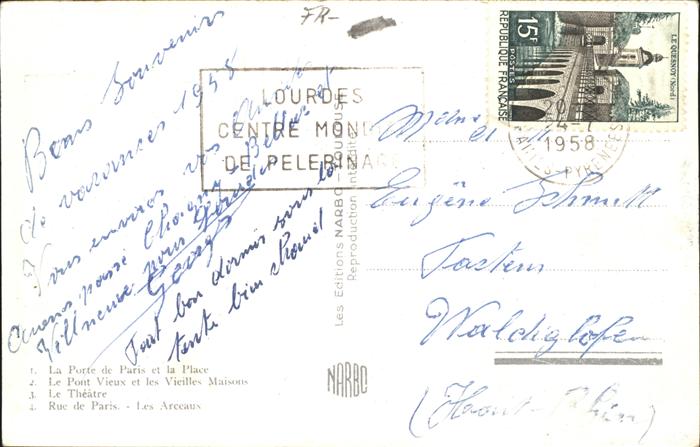 FR-
Bons Souvenirs
de vacances 1958
Vous envoies vos
avons passé
Villneuve pour
Georges
Tout bon dormir sous la
tente bien chaud
LOURDES
CENTRE MOND
DE PELERINAG
Les Editions NARBO
Reproduction interdite
15F
POSTES
REPUBLIQUE FRANÇAISE
LE QUESNOY (Nord)
1958
PYRENEES
Eugène Schmitt
Waldighofen
(Haut-Rhin)
1. La Porte de Paris et la Place
2. Le Pont Vieux et les Vieilles Maisons
3. Le Théâtre
4. Rue de Paris. - Les Arceaux
NARBO